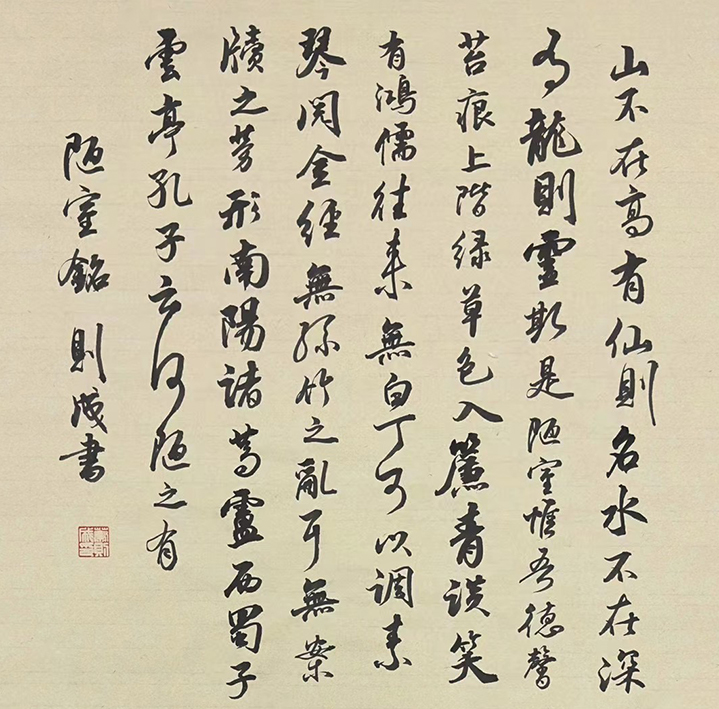 山不在高有仙則名水不在深
有龍則靈斯是陋室惟吾德馨
苔痕上階緑草色入簾青談笑
有鴻儒往来無白丁可以調素
琴閲金經無絲竹之亂耳無案
牘之勞形南陽諸葛盧西蜀子
雲亭孔子云何陋之有
陋室銘 則成書